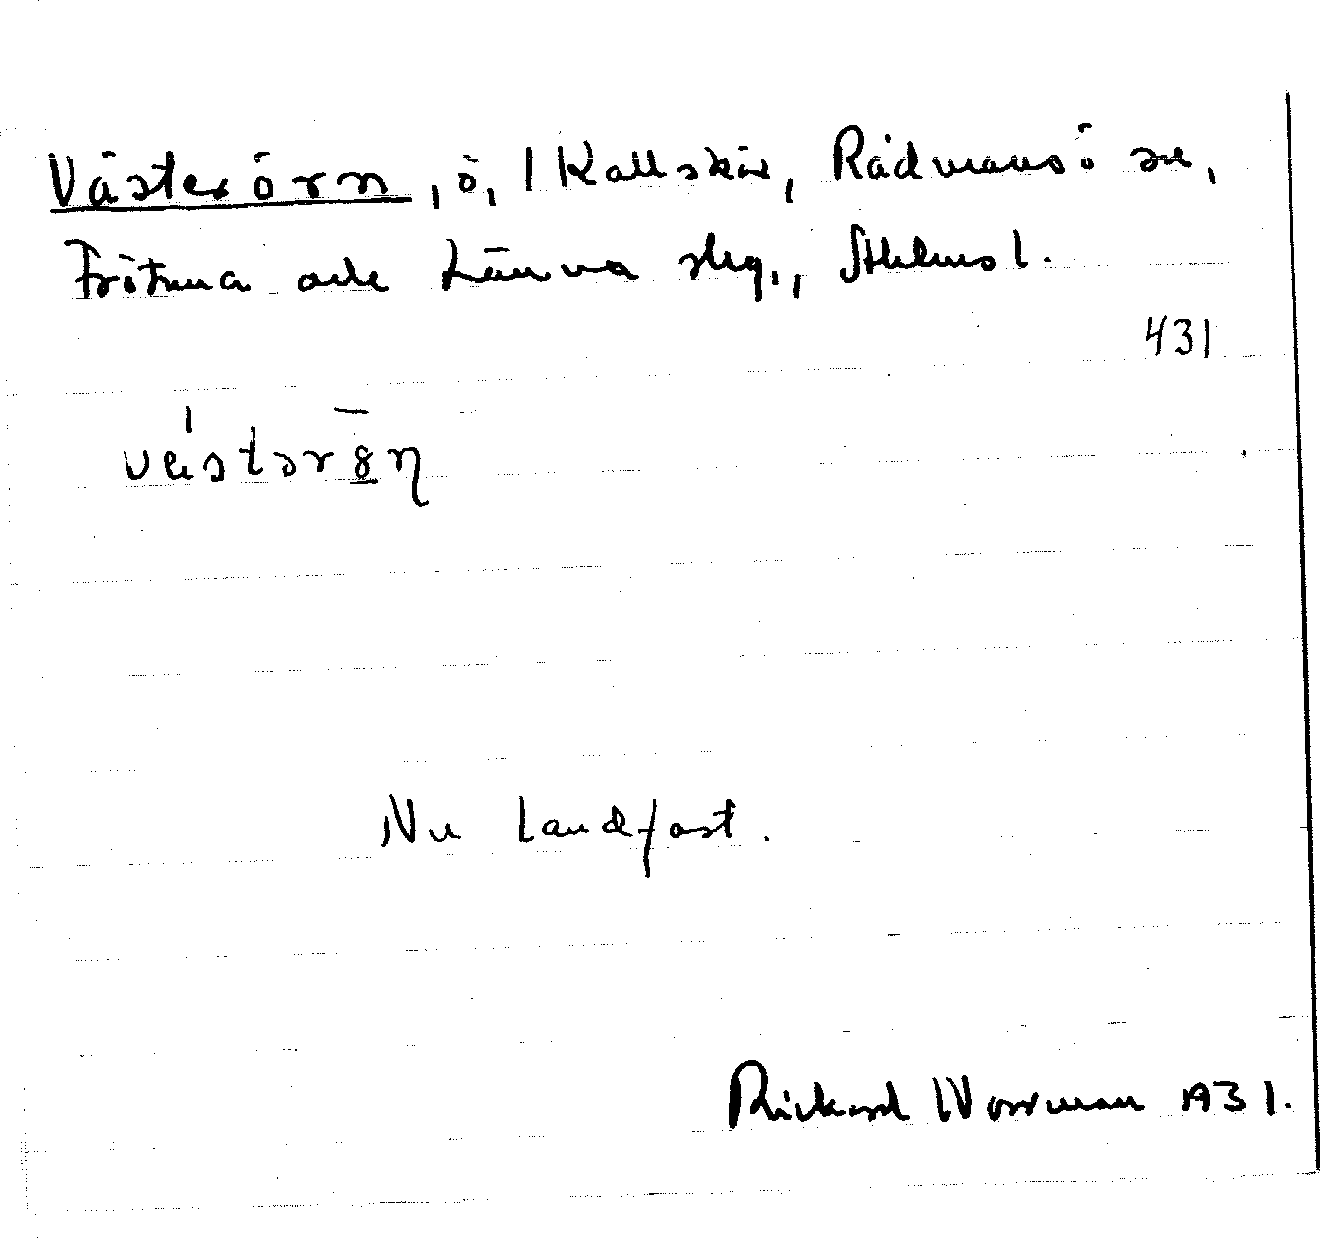 Västerörn, ö, I Kallskär, Rådmansö sn,
Frötuna och Länna slg., Sthlms l.
431
västərȣ̄ɳ
Nu landfast.
Rickard Norrman 1931.